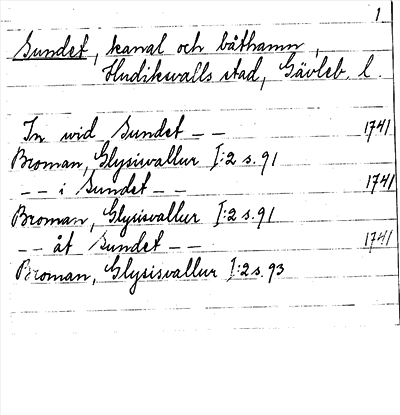 1
Sundet, kanal och båthamn,
Hudiksvalls stad, Gävleb. l.
In wid Sundet – – 1741
Broman, Glysisvallur I:2 s. 91
– – i Sundet – – 1741
Broman, Glysisvallur I:2 s. 91
– – åt Sundet – – 1741
Broman, Glysisvallur I:2 s. 93